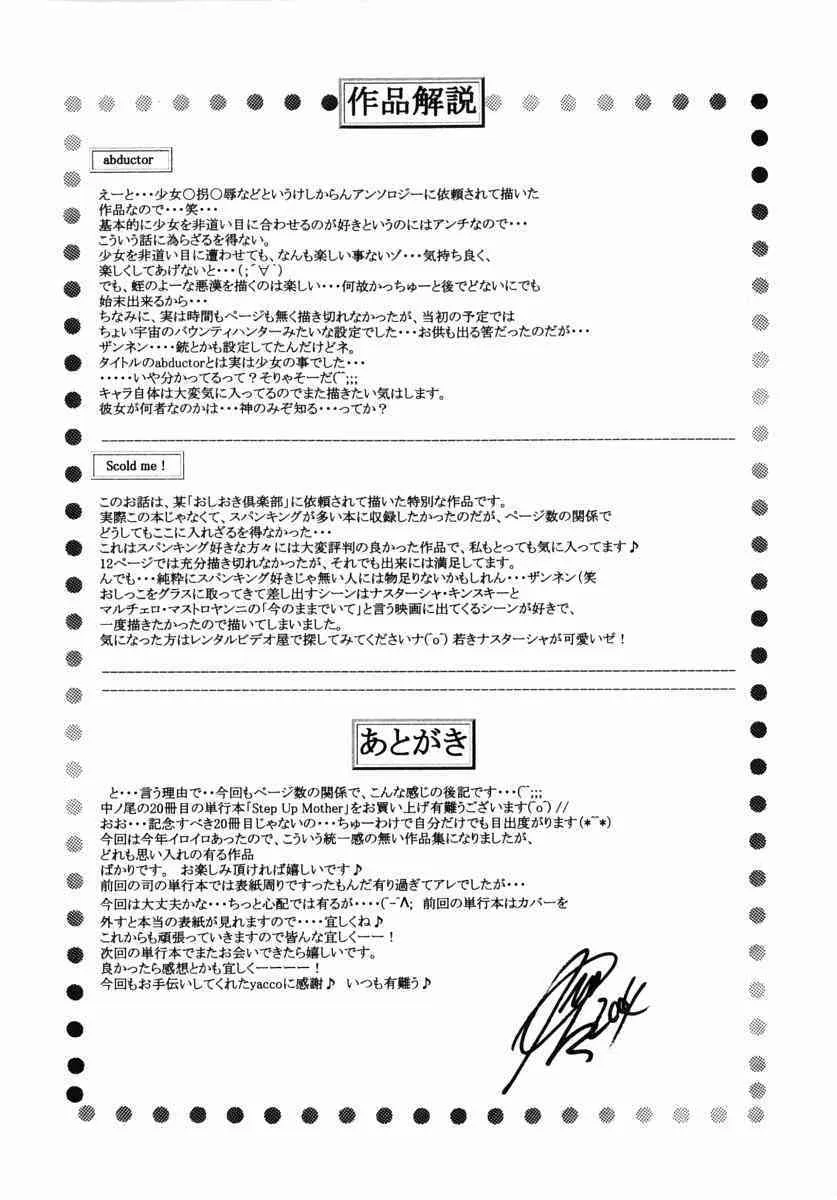 作品解説
abductor
えーと・・・少女○拐○辱などというけしからんアンソロジーに依頼されて描いた
作品なので・・・笑・・・
基本的に少女を非道い目に合わせるのが好きというのにはアンチなので・・・
こういう話に為らざるを得ない。
少女を非道い目に遭わせても、なんも楽しい事ないゾ・・・気持ち良く、
楽しくしてあげないと・・・(；´∀`)
でも、蛭のよーな悪漢を描くのは楽しい・・・何故かっちゅーと後でどないにでも
始末出来るから・・・
ちなみに、実は時間もページも無く描き切れなかったが、当初の予定では
ちょい宇宙のバウンティハンターみたいな設定でした・・・お供も出る筈だったのだが・・・
ザンネン・・・・銃とかも設定してたんだけどネ。
タイトルのabductorとは実は少女の事でした・・・
・・・・・いや分かってるって？そりゃそーだ(⌒;;;
キャラ自体は大変気に入ってるのでまた描きたい気はします。
彼女が何者なのかは・・・神のみぞ知る・・・ってか？
Scold me！
このお話は、某「おしおき倶楽部」に依頼されて描いた特別な作品です。
実際この本じゃなくて、スパンキングが多い本に収録したかったのだが、ページ数の関係で
どうしてもここに入れざるを得なかった・・・
これはスパンキング好きな方々には大変評判の良かった作品で、私もとっても気に入ってます♪
12ページでは充分描き切れなかったが、それでも出来には満足してます。
んでも・・・純粋にスパンキング好きじゃ無い人には物足りないかもしれん・・・ザンネン(笑
おしっこをグラスに取ってきて差し出すシーンはナスターシャ・キンスキーと
マルチェロ・マストロヤンニの「今のままでいて」と言う映画に出てくるシーンが好きで、
一度描きたかったので描いてしまいました。
気になった方はレンタルビデオ屋で探してみてくださいナ(⌒o⌒) 若きナスターシャが可愛いゼ！
あとがき
と・・・言う理由で・・今回もページ数の関係で、こんな感じの後記です・・・(⌒;;;
中ノ尾の20冊目の単行本「Step Up Mother」をお買い上げ有難うございます(⌒o⌒)//
おお・・・記念すべき20冊目じゃないの・・・ちゅーわけで自分だけでも目出度がります(*⌒⌒*)
今回は今年イロイロあったので、こういう統一感の無い作品集になりましたが、
どれも思い入れの有る作品
ばかりです。 お楽しみ頂ければ嬉しいです♪
前回の司の単行本では表紙周りですったもんだ有り過ぎてアレでしたが・・・
今回は大丈夫かな・・・ちっと心配では有るが・・・・(⌒-⌒Λ; 前回の単行本はカバーを
外すと本当の表紙が見れますので・・・・宜しくね♪
これからも頑張っていきますので皆んな宜しくーー！
次回の単行本でまたお会いできたら嬉しいです。
良かったら感想とかも宜しくーーーー！
今回もお手伝いしてくれたyaccoに感謝♪ いつも有難う♪
2004